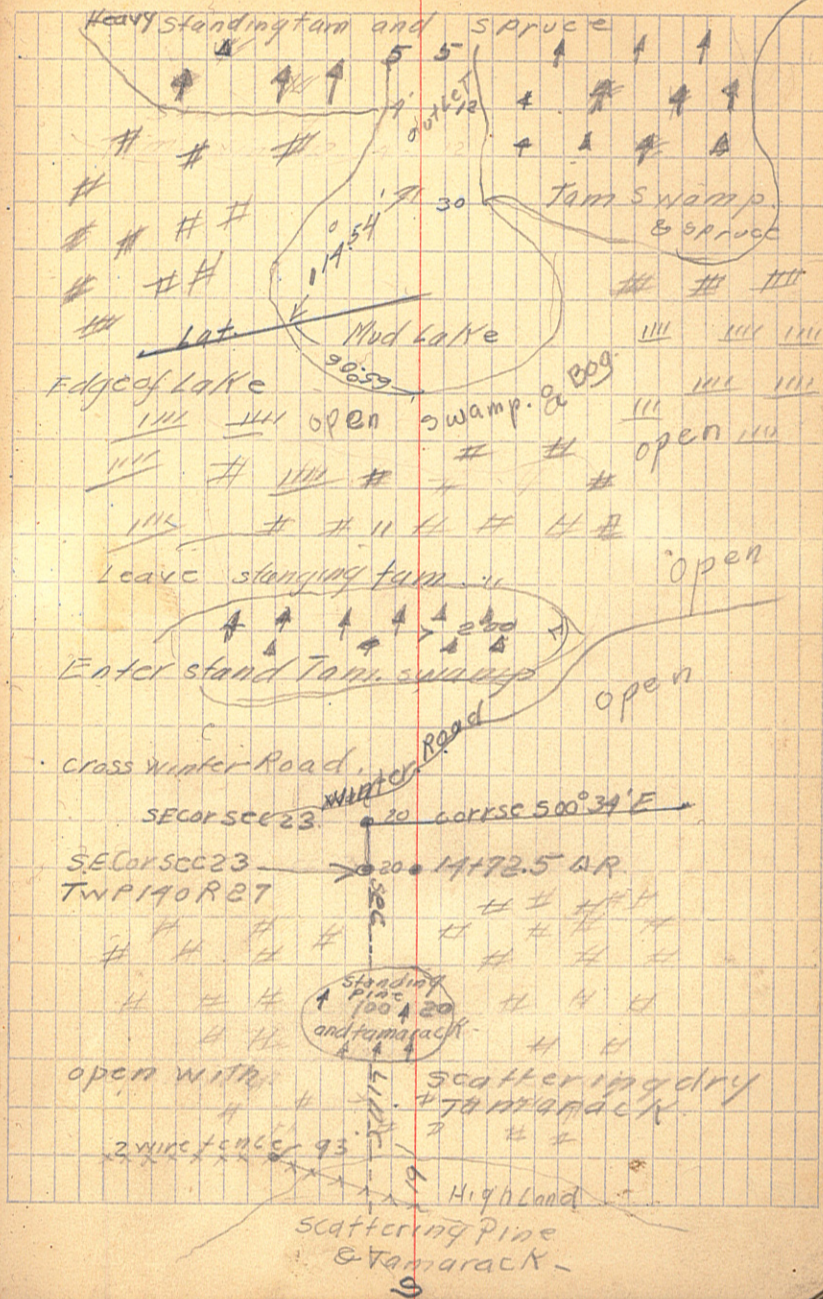 Heavy standing tam and spruce
5 5
outlet
12
30
Tam Swamp
& spruce
114.54
Lat.
Mud Lake
90.59
Edge of Lake
open swamp. & Bog.
open
Leave standing tam.
open
200
Enter stand Tam. swamp
open
Cross winter Road.
Winter Road
SE Cor sec 23
20
corrsc S00°34'E
S.E. Cor sec 23
20
14+72.5 AR
TWP 140 R 27
sec
Line
standing
pine
100 20
and tamarack
open with scattering dry
Tamarack
2 wire fence 93
Highland
scattering Pine
& Tamarack